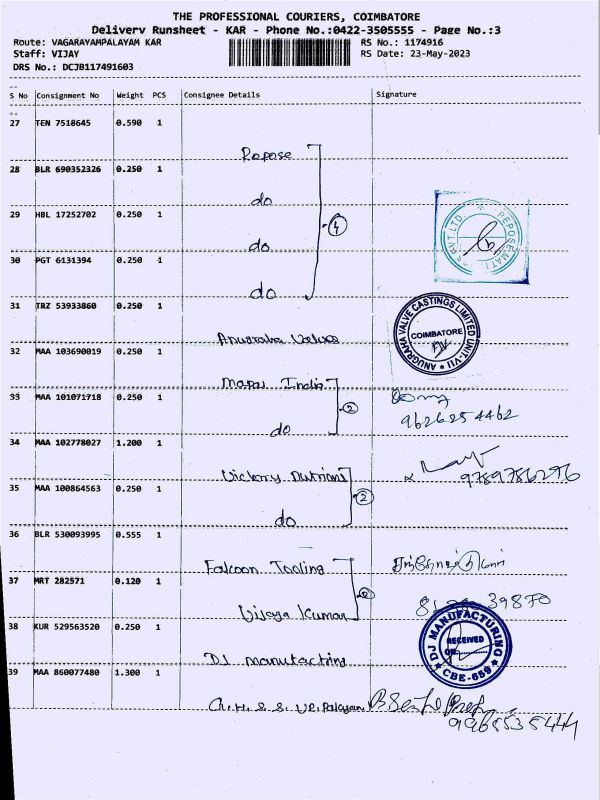 THE PROFESSIONAL COURIERS, COIMBATORE
Delivery Runsheet - KAR - Phone No.:0422-3505555 - Page No.:3
Route: VAGARAYAMPALAYAM KAR RS No.: 1174916
Staff: VIJAY RS Date: 23-May-2023
DRS No.: DCJB117491603
S No Consignment No Weight PCS Consignee Details Signature
27 TEN 7518645 0.590 1
Repose
28 BLR 690352326 0.250 1
do
29 HBL 17252702 0.250 1
do
4
30 PGT 6131394 0.250 1
do
31 TRZ 53933860 0.250 1
ANUGRAHA VALVE CASTINGS LIMITED UNIT-VII
COIMBATORE
Anugraha Valves
32 MAA 103690019 0.250 1
Mapai India
33 MAA 101071718 0.250 1
2
do
9626254462
34 MAA 102778027 1.200 1
Victory Nutrians
9789786296
35 MAA 100864563 0.250 1
2
do
36 BLR 530093995 0.555 1
Falcoon Tooling
37 MRT 282571 0.120 1
2
39870
Vijaya Kumar
38 KUR 529563520 0.250 1
DJ MANUFACTURING
RECEIVED
ON
CBE-659
DJ manufacthing
39 MAA 860077480 1.300 1